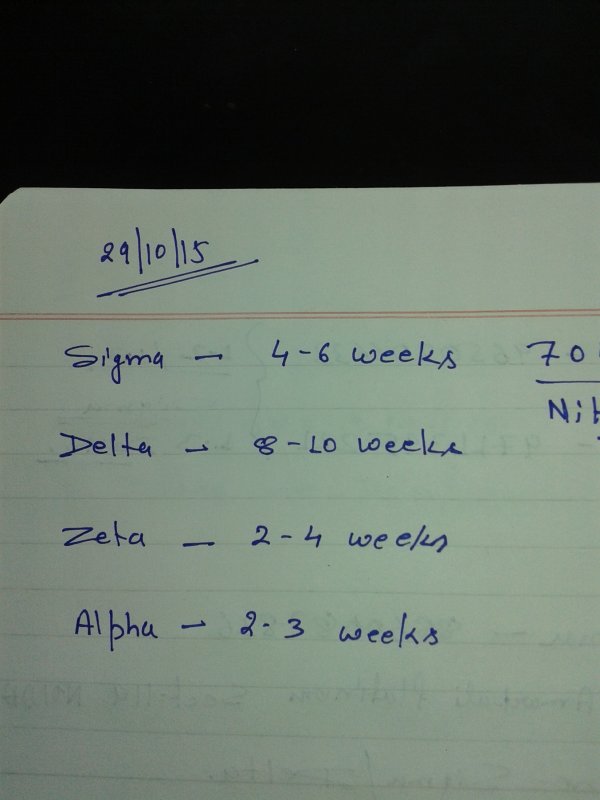 29/10/15
Sigma - 4-6 weeks
Delta - 8-10 weeks
Zeta - 2-4 weeks
Alpha - 2-3 weeks